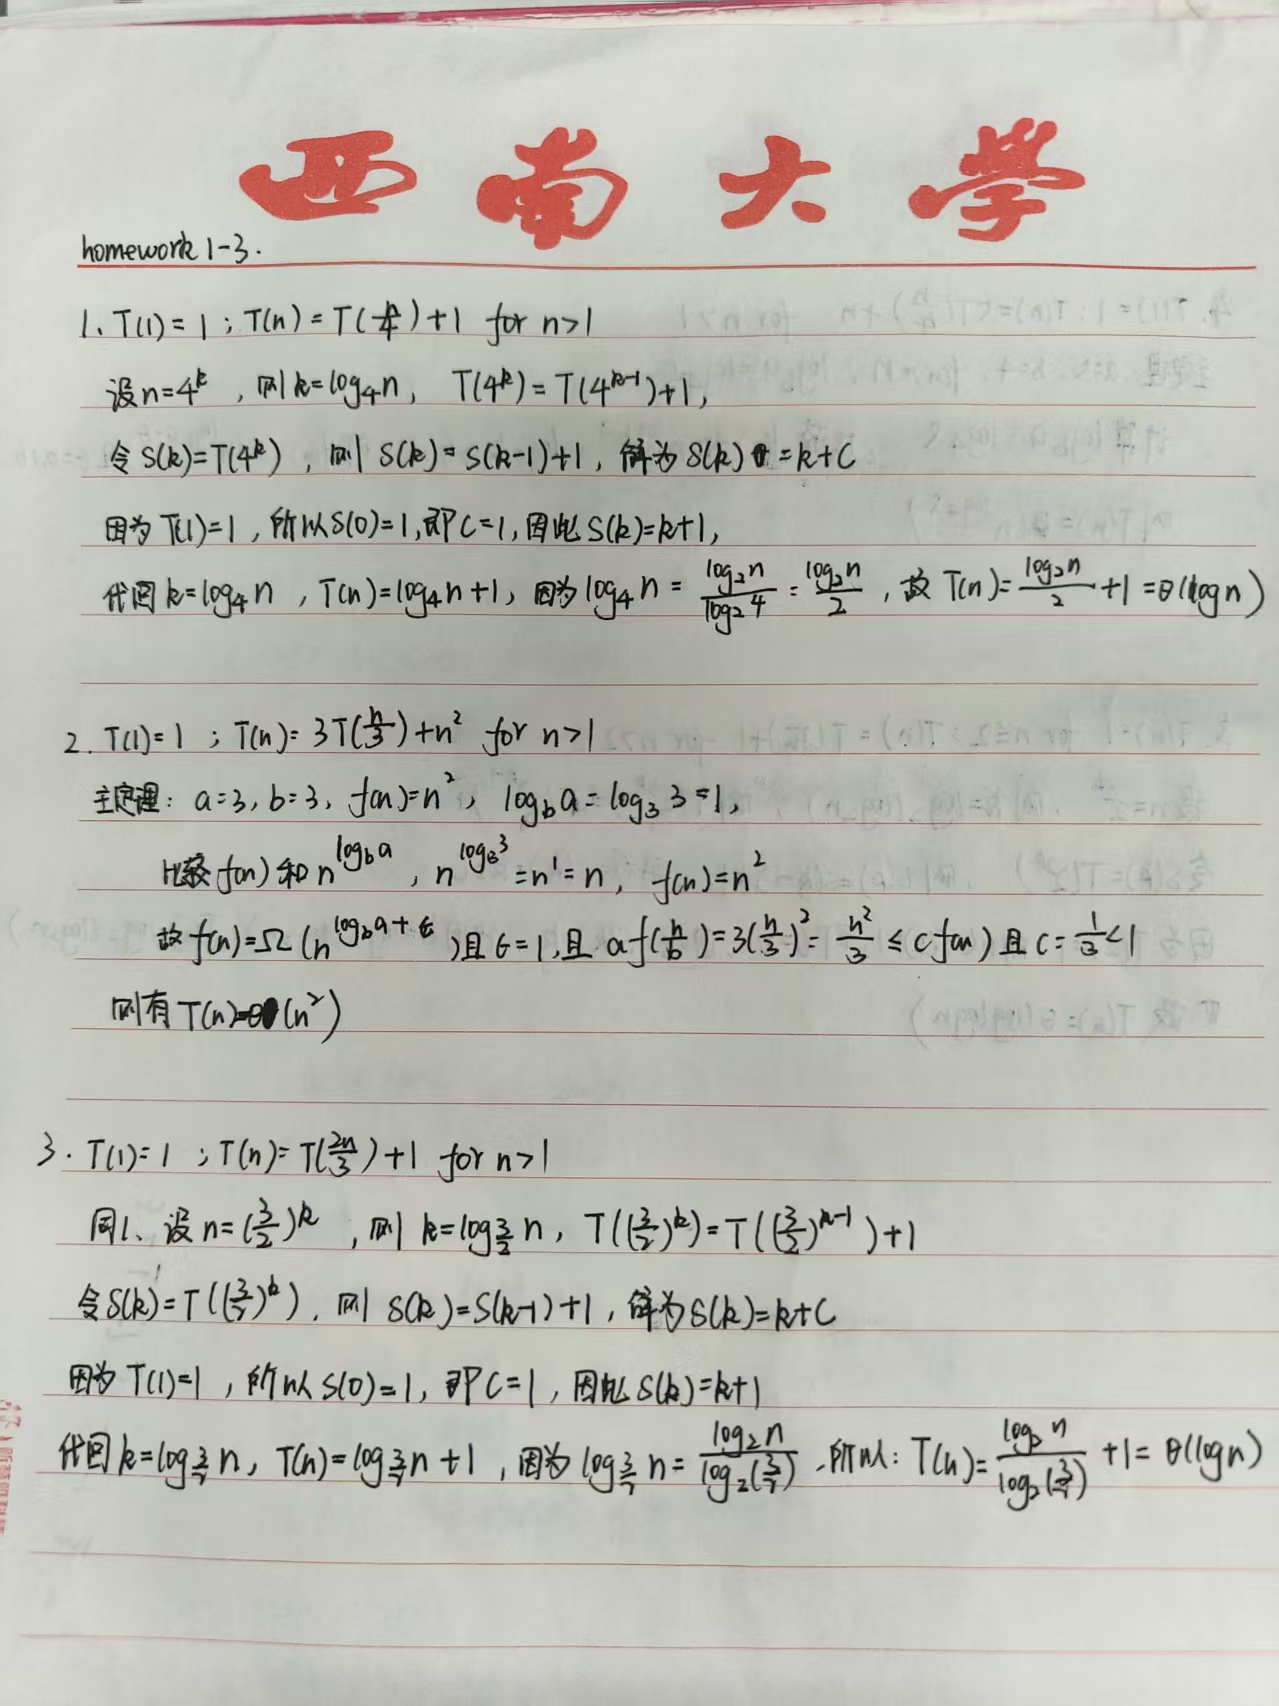 西南大学
homework 1-3.
1、T(1)=1；T(n)=T(n/4)+1 for n>1
设n=4^k，则k=log₄n，T(4^k)=T(4^(k-1))+1，
令S(k)=T(4^k)，则S(k)=S(k-1)+1，解为S(k)=k+C
因为T(1)=1，所以S(0)=1，即C=1，因此S(k)=k+1，
代回k=log₄n，T(n)=log₄n+1，因为log₄n=log₂n/log₂4=log₂n/2，故T(n)=log₂n/2+1=θ(logn)
2. T(1)=1；T(n)=3T(n/3)+n² for n>1
主定理：a=3，b=3，f(n)=n²，log_b a=log₃3=1，
比较f(n)和n^(log_b a)，n^(log₃3)=n¹=n，f(n)=n²
故f(n)=Ω(n^(log_b a+ϵ))且ϵ=1，且af(n/b)=3(n/3)²=n²/3≤cf(n)且c=1/3<1
则有T(n)=θ(n²)
3. T(1)=1；T(n)=T(2n/3)+1 for n>1
同1、设n=(3/2)^k，则k=log_(3/2)n，T((3/2)^k)=T((3/2)^(k-1))+1
令S(k)=T((3/2)^k)，则S(k)=S(k-1)+1，解为S(k)=k+C
因为T(1)=1，所以S(0)=1，即C=1，因此S(k)=k+1
代回k=log_(3/2)n，T(n)=log_(3/2)n+1，因为log_(3/2)n=log₂n/log₂(3/2)，所以：T(n)=log₂n/log₂(3/2)+1=θ(logn)